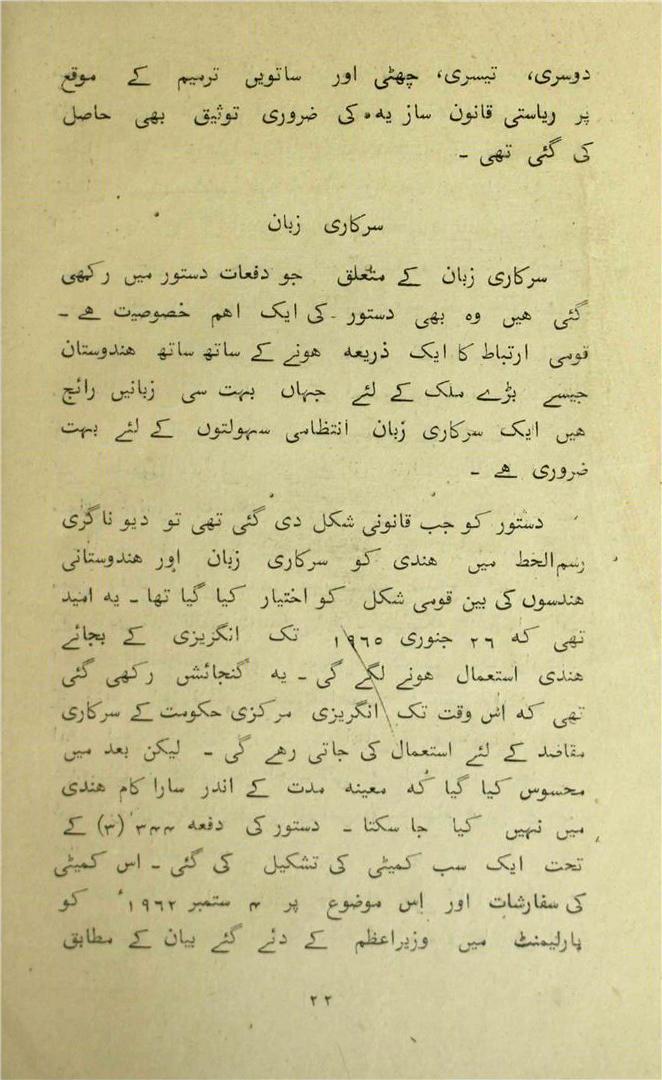 دوسری، تیسری، چھٹی اور ساتویں ترمیم کے موقع
پر ریاستی قانون ساز یہ کی ضروری توثیق بھی حاصل
کی گئی تھی ۔
سرکاری زبان
سرکاری زبان کے متعلق جو دفعات دستور میں رکھی
گئی ھیں وہ بھی دستور کی ایک اھم خصوصیت ھے ۔
قومی ارتباط کا ایک ذریعہ ھونے کے ساتھ ساتھ ھندوستان
جیسے بڑے ملک کے لئے جہاں بہت سی زبانیں رائج
ھیں ایک سرکاری زبان انتظامی سہولتوں کے لئے بہت
ضروری ھے ۔
دستور کو جب قانونی شکل دی گئی تھی تو دیو ناگری
رسم الخط میں ھندی کو سرکاری زبان اور ھندوستانی
ھندسوں کی بین قومی شکل کو اختیار کیا گیا تھا ۔ یہ امید
تھی کہ ۲۶ جنوری ۱۹۶۵ تک انگریزی کے بجائے
ھندی استعمال ھونے لگے گی ۔ یہ گنجائش رکھی گئی
تھی کہ اس وقت تک انگریزی مرکزی حکومت کے سرکاری
مقاصد کے لئے استعمال کی جاتی رھے گی ۔ لیکن بعد میں
محسوس کیا گیا کہ معینہ مدت کے اندر سارا کام ھندی
میں نہیں کیا جا سکتا ۔ دستور کی دفعہ ۳۴۴ (۳) کے
تحت ایک سب کمیٹی کی تشکیل کی گئی ۔ اس کمیٹی
کی سفارشات اور اس موضوع پر ۴ ستمبر ۱۹۶۲ کو
پارلیمنٹ میں وزیراعظم کے دئے گئے بیان کے مطابق
۲۲